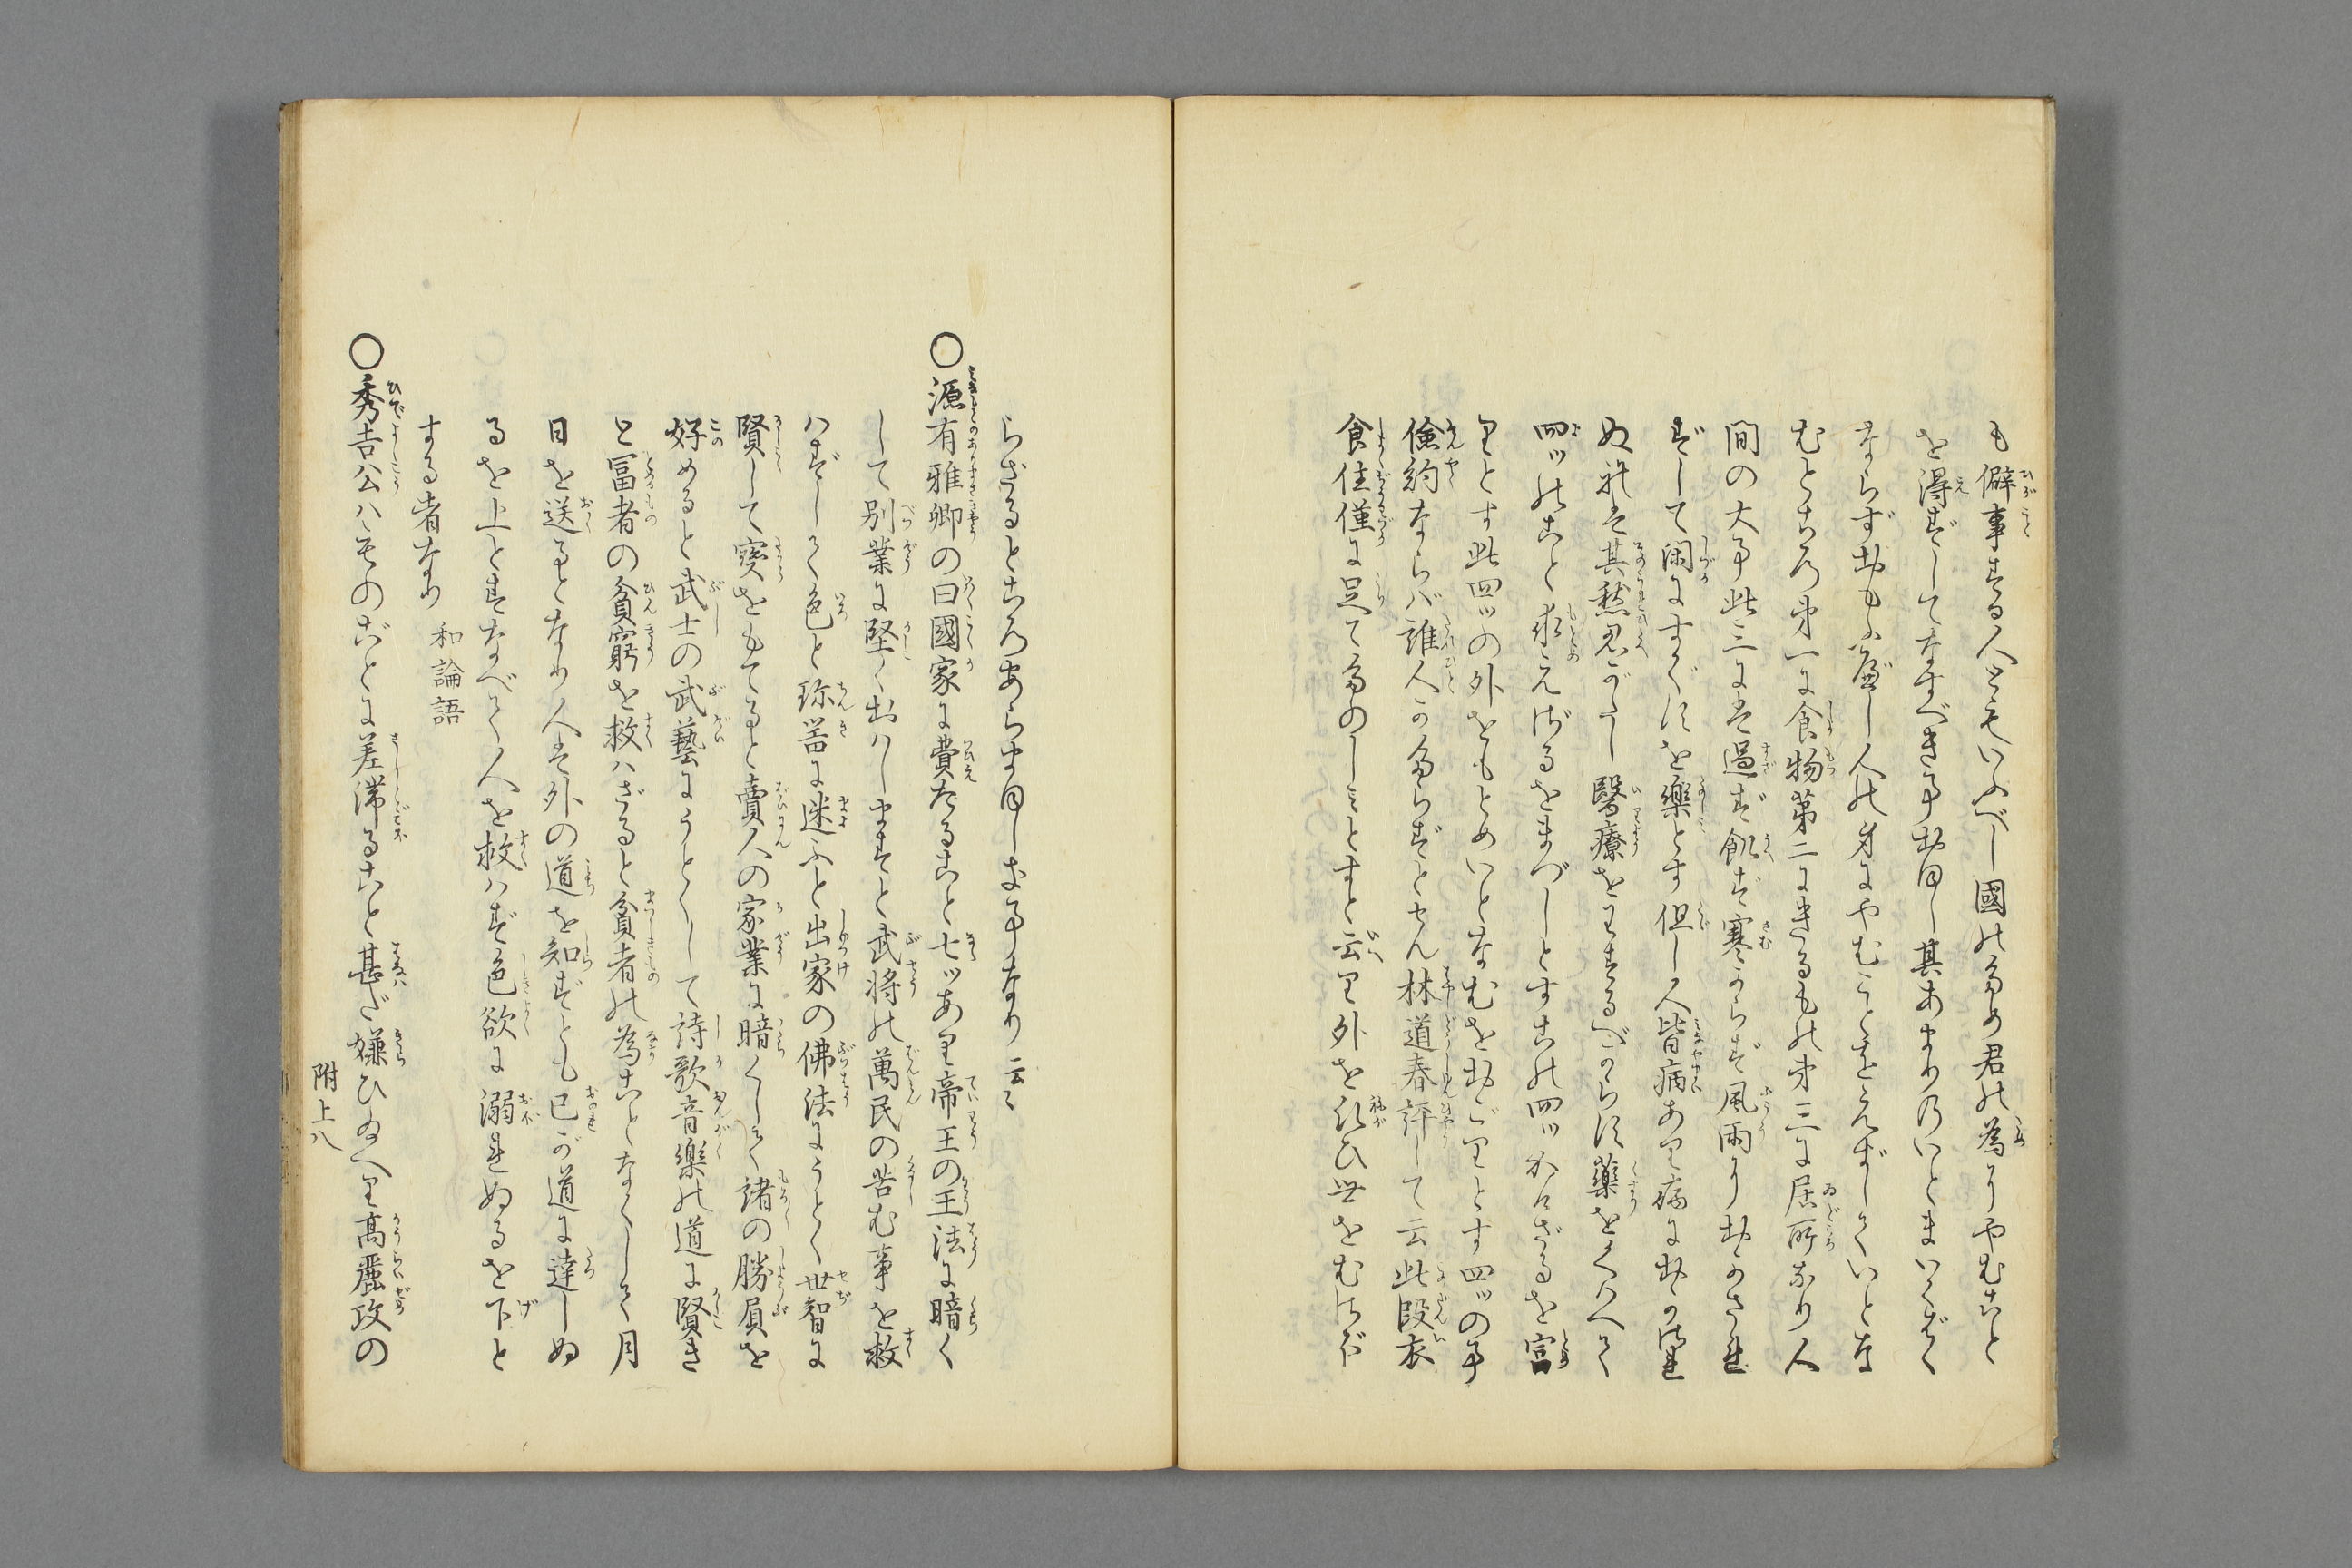 も僻事する人ともいふべし國の為め君の為にやむこと
を得ずしてなすべき事おほし其あまりのいとまいくばく
ならずおもふべし人の身にやむことをえずしていとな
むところ第一に食物第二にきるもの第三に居所なり人
間の大事此三には過ず飢ず寒からず風雨におかされ
ずして閑にすぐすを樂とす但し人皆病あり病におかされ
ぬれば其愁忍がたし醫療をわするべからず藥をくはへて
四ツのこと求えざるをまづしとすこの四ツかけざるを富
りとす此四ツの外をもとめいとなむをおごりとす四ツの事
儉約ならバ誰人か多らずとせん林道春評して云此段衣
食住僅に足てたのしミとすと云り外を願ひ世をむさぼ
らざるところあらまほしき事なり云々
〇源有雅卿の曰國家に費たること七ツあり帝王の王法に暗く
して別業に堅く出ハしますと武将の萬民の苦む事を救
ハずして色と珎器に迷ふと出家の佛法にうとく世智に
賢して寳をもてると賣人の家業に暗くして諸の勝屓を
好めると武士の武藝にうとくして詩歌音樂の道に賢き
と冨者の貧窮を救ハざると貧者の為ことなくして月
日を送るとなり人は外の道を知ずとも已が道に達しぬ
るを上とすなべて人を救ハず色欲に溺れぬるを下と
する者なり　和論語
〇秀吉公ハものごとに差滯ること甚だ嫌ひ給へり高麗攻の
附上八